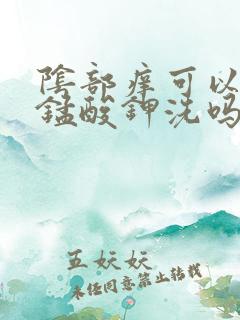 陰部痒可以
锰酸钾洗吗
五妖妖
未经同意禁止转载